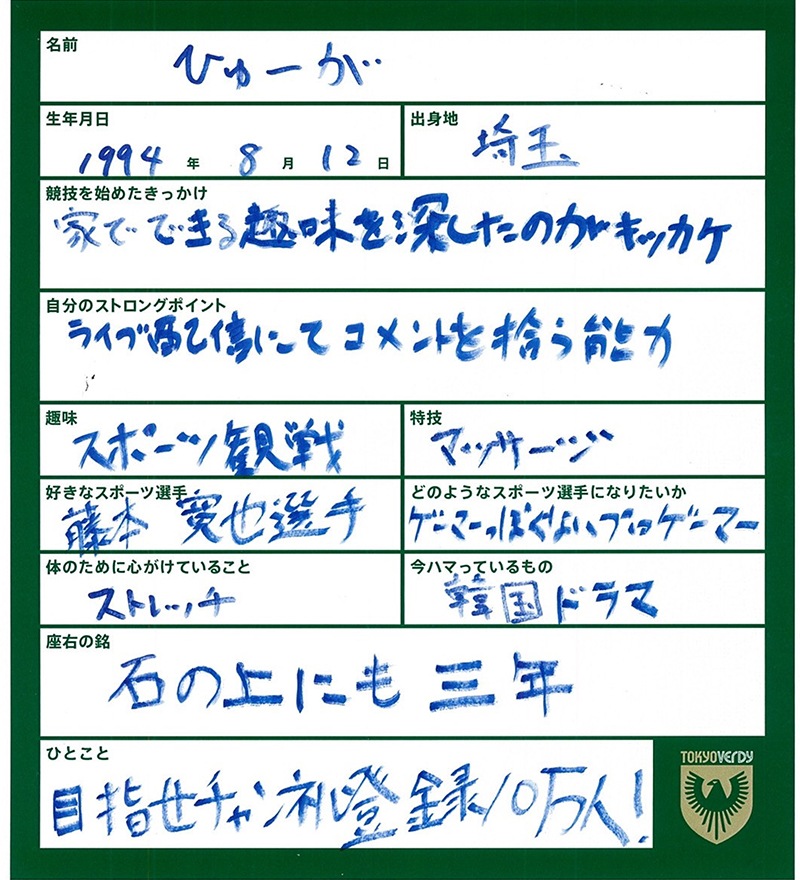 名前
ひゅーが
生年月日
1994 年 8 月 12 日
出身地
埼玉
競技を始めたきっかけ
家でできる趣味を探したのがキッカケ
自分のストロングポイント
ライブ配信にてコメントを拾う能力
趣味
スポーツ観戦
特技
マッサージ
好きなスポーツ選手
藤本 寛也選手
どのようなスポーツ選手になりたいか
ゲーマーっぽくないプロゲーマー
体のために心がけていること
ストレッチ
今ハマっているもの
韓国ドラマ
座右の銘
石の上にも三年
ひとこと
目指せチャンネル登録10万人!
TOKYO VERDY